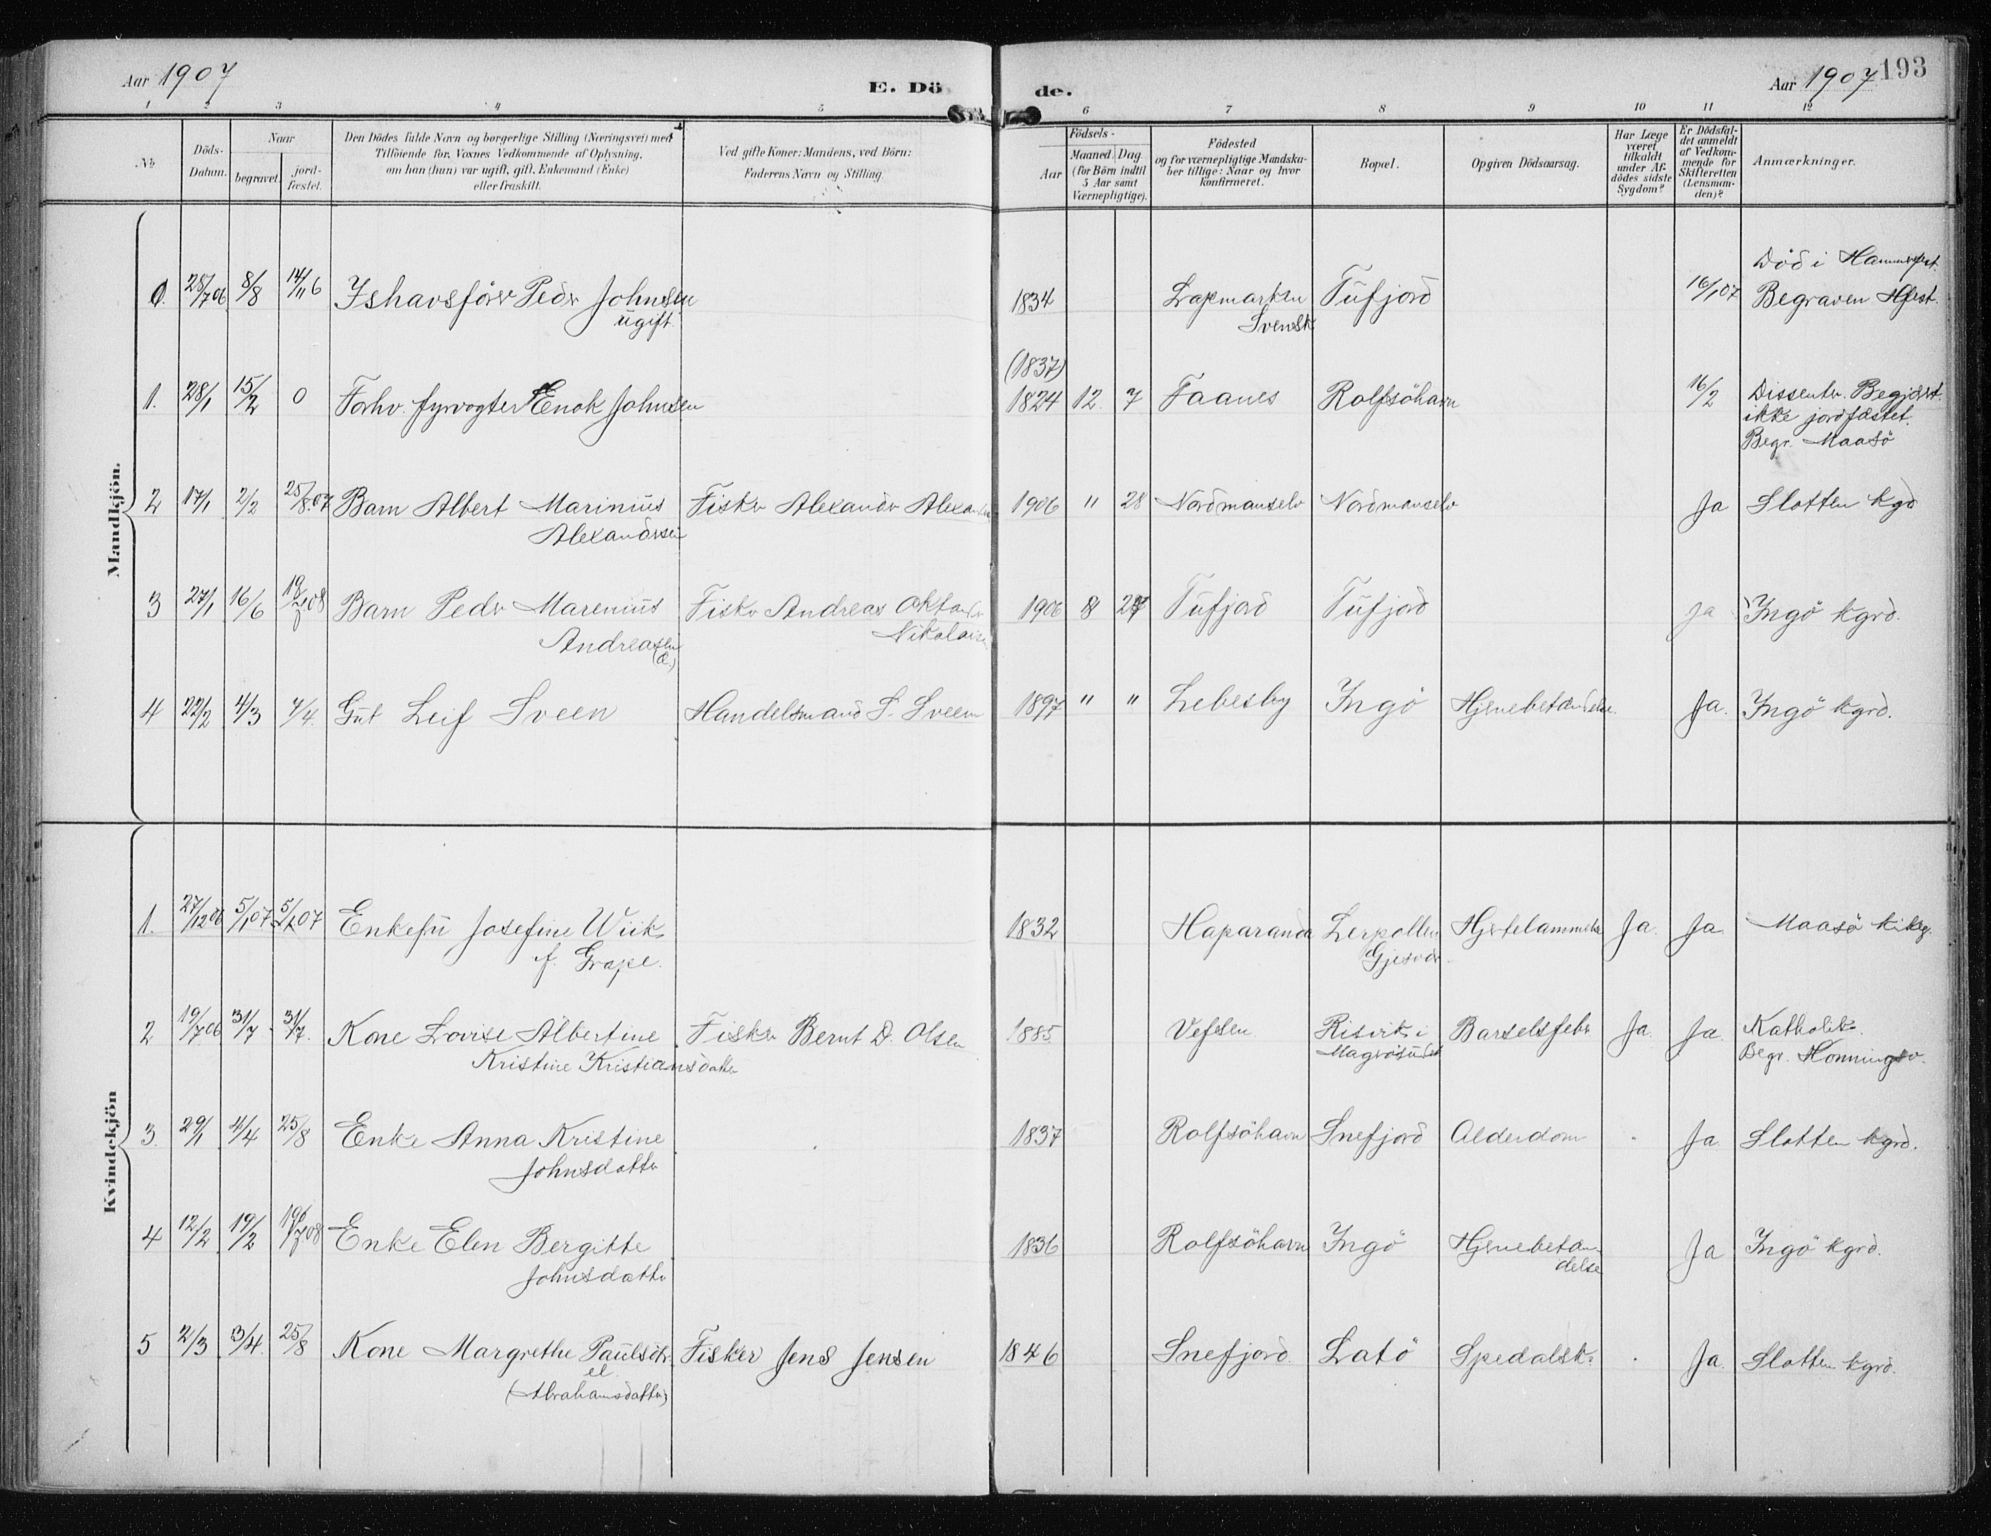 Aar 1907
E. Dö
de.
Aar 1907
193
1 2 3 4 5 6 7 8 9 10 11 12
No
Döds-
Datum.
Naar
begravet.
jord-
fæstet.
Den Dödes fulde Navn og borgerlige Stilling (Næringsvei) med
Tilföiende for Voxnes Vedkommende af Oplysning,
om han (hun) var ugift, gift, Enkemand (Enke)
eller fraskilt.
Ved gifte Koner: Mandens, ved Börn:
Faderens Navn og Stilling
Födsels-
Aar
Maaned Dag
(for Börn indtil
5 Aar samt
Værnepligtige).
Födested
og for værnepligtige Mandska-
ber tillige: Naar og hvor
Konfirmeret.
Bopæl.
Opgiven Dödsaarsag.
Har Læge
været
tilkaldt
under Af-
dödes sidste
Sygdom?
Er Dödsfal-
det anmeldt
af Vedkom-
mende for
Skifteretten
(Lensman-
den)?
Anmærkninger.
Mandkjön.
0. 28/7 06 8/8 14/11 6 Ishavsförer Peder Johnsen 1834 Lapmarken Tufjord 16/1 07 Död i Hammerfest.
ugift. Svensk Begraven Hfest.
(1837)
1. 28/1 15/2 0 Forhv. fyrvogter Enok Johnsen 1824 12. 7 Faanes Rolfsöhavn 16/2 Dissenter. Begjært.
ikke jordfæstet.
Begr. Maasö
2 17/1 2/2 25/8.07 Barn Albert Marinius Fisker Alexander Alexandersen 1906 " 28 Nordmanselv Nordmanselv Ja Slotten kgd
Alexandersen
3 27/1 16/6 19/7 08 Barn Peder Marenius Fisker Andreas Oktav 1906 8 27 Tufjord Tufjord ja Ingö kgrd.
Andreassen Nikolaisen
4 22/2 4/3 7/4. Gut Leif Sveen Handelsmand S. Sveen 1897 " " Lebesby Ingö Hjernebetændelse. Ja. Ingö kgrd.
Kvindekjön
1. 27/12 06 5/1 07 5/1 07 Enkefru Josefine Wiik 1832 Haparanda Lerpollen Hjertelammelse Ja. Ja. Maasö kirkeg.
f. Grape. Gjesvær
2 19/7 06 31/7 31/7. Kone Lovise Albertine Fisker Bernt D. Olsen 1885 Vefsen Risvik i Barselsfeber Ja Ja. Katholik.
Kristine Kristiansdatter Magrösundet Begr. Honningsv.
3. 29/1 4/4 25/8 Enke Anna Kristine 1837 Rolfsöhavn Snefjord Alderdom Ja Slotten kgrd.
Johnsdatter
4 12/2 19/2 19/7 08 Enke Elen Bergitte 1836 Rolfsöhavn Ingö Hjernebetæn- Ja Ingö kgrd.
Johnsdatter delse
5 2/3 3/4. 25/8 Kone Margrethe Paulsdtr. Fisker Jens Jensen 1846 Snefjord. Latö Spedalsk. Ja. Slotten kgrd.
el
(Abrahamsdatter)